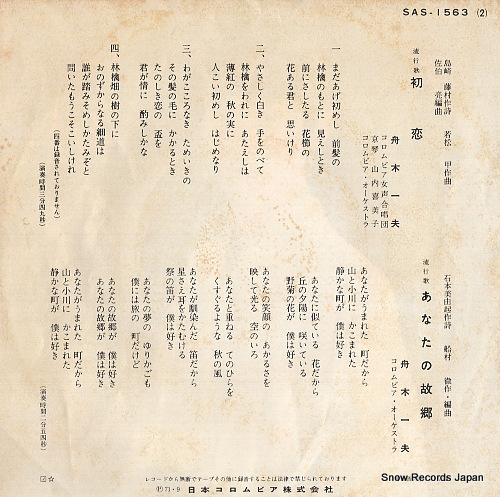 SAS-1563 (2)
島崎 藤村作詩 若松 甲作曲
佐伯 亮編曲
流行歌 初恋
舟木一夫
コロムビア女声合唱団
京琴 山内喜美子
コロムビア・オーケストラ
一 まだあげ初めし 前髪の
林檎のもとに 見えしとき
前にさしたる 花櫛の
花ある君と 思いけり
二、やさしく白き 手をのべて
林檎をわれに あたえしは
薄紅の 秋の実に
人こい初めし はじめなり
三、わがこころなき ためいきの
その髪の毛に かかるとき
たのしき恋の 盃を
君が情に 酌みしかな
四、林檎畑の樹の下に
おのずからなる細道は
誰が踏みそめしかたみぞと
問いたもうこそこいしけれ
(四番は録音されておりません)
(演奏時間三分四九秒)
石本美由起作詩 船村 徹作・編曲
流行歌 あなたの故郷
舟木一夫
コロムビア・オーケストラ
あなたがうまれた 町だから
山と小川に かこまれた
静かな町が 僕は好き
あなたに似ている 花だから
丘の夕陽に 咲いている
野菊の花が 僕は好き
あなたの笑顔の あかるさを
映して光る 空のいろ
あなたと重ねる てのひらを
くすぐるような 秋の風
あなたが馴染んだ 笛だから
星さえ耳をかたむける
祭の笛が 僕は好き
あなたの夢の ゆりかごも
僕には旅の 町だけど
あなたの故郷が 僕は好き
あなたの故郷が 僕は好き
あなたがうまれた 町だから
山と小川に かこまれた
静かな町が 僕は好き
(演奏時間二分五四秒)
レコードから無断でテープその他に録音することは法律で禁じられております
Ⓟ71・9 日本コロムビア株式会社
☑☆
Snow Records Japan
www.snowrecords.jp